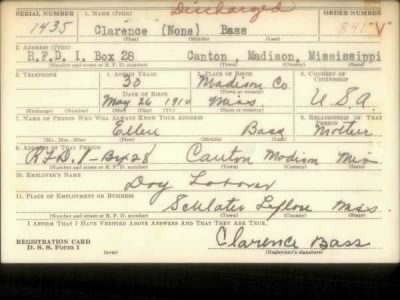 Discharged
SERIAL NUMBER 1. NAME (Print) ORDER NUMBER
1435 Clarence (None) Bass 841 "V"
(First) (Middle) (Last)
2. ADDRESS (Print)
R.F.D. 1. Box 28 Canton, Madison, Mississippi
(Number and street or R. F. D. number) (Town) (County) (State)
3. TELEPHONE 4. AGE IN YEARS 5. PLACE OF BIRTH 6. COUNTRY OF CITIZENSHIP
30 Madison Co
DATE OF BIRTH (Town or county)
May 26 1910 Miss U.S.A.
(Exchange) (Number) (Mo.) (Day) (Yr.) (State or country)
7. NAME OF PERSON WHO WILL ALWAYS KNOW YOUR ADDRESS 8. RELATIONSHIP OF THAT PERSON
Ellen Bass Mother
(Mr., Mrs., Miss) (First) (Middle) (Last)
9. ADDRESS OF THAT PERSON
R.F.D. 1 - Box 28 Canton Madison Miss
(Number and street or R. F. D. number) (Town) (County) (State)
10. EMPLOYER'S NAME
Day Laborer
11. PLACE OF EMPLOYMENT OR BUSINESS
Schlater Leflore Miss.
(Number and street or R. F. D. number) (Town) (County) (State)
I AFFIRM THAT I HAVE VERIFIED ABOVE ANSWERS AND THAT THEY ARE TRUE.
REGISTRATION CARD
D. S. S. Form 1 Clarence Bass
(Registrant's signature)